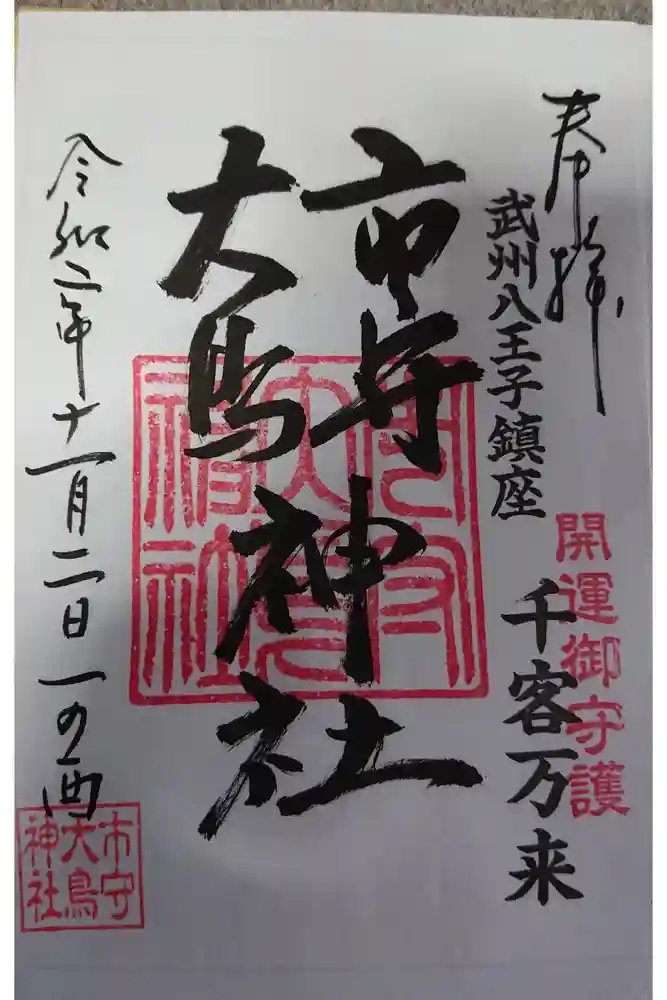 奉拝
武州八王子鎮座
開運御守護
千客万来
市守
大鳥
神社
令和二年十一月二日一の酉
市守
大鳥
神社
市守
大鳥
神社